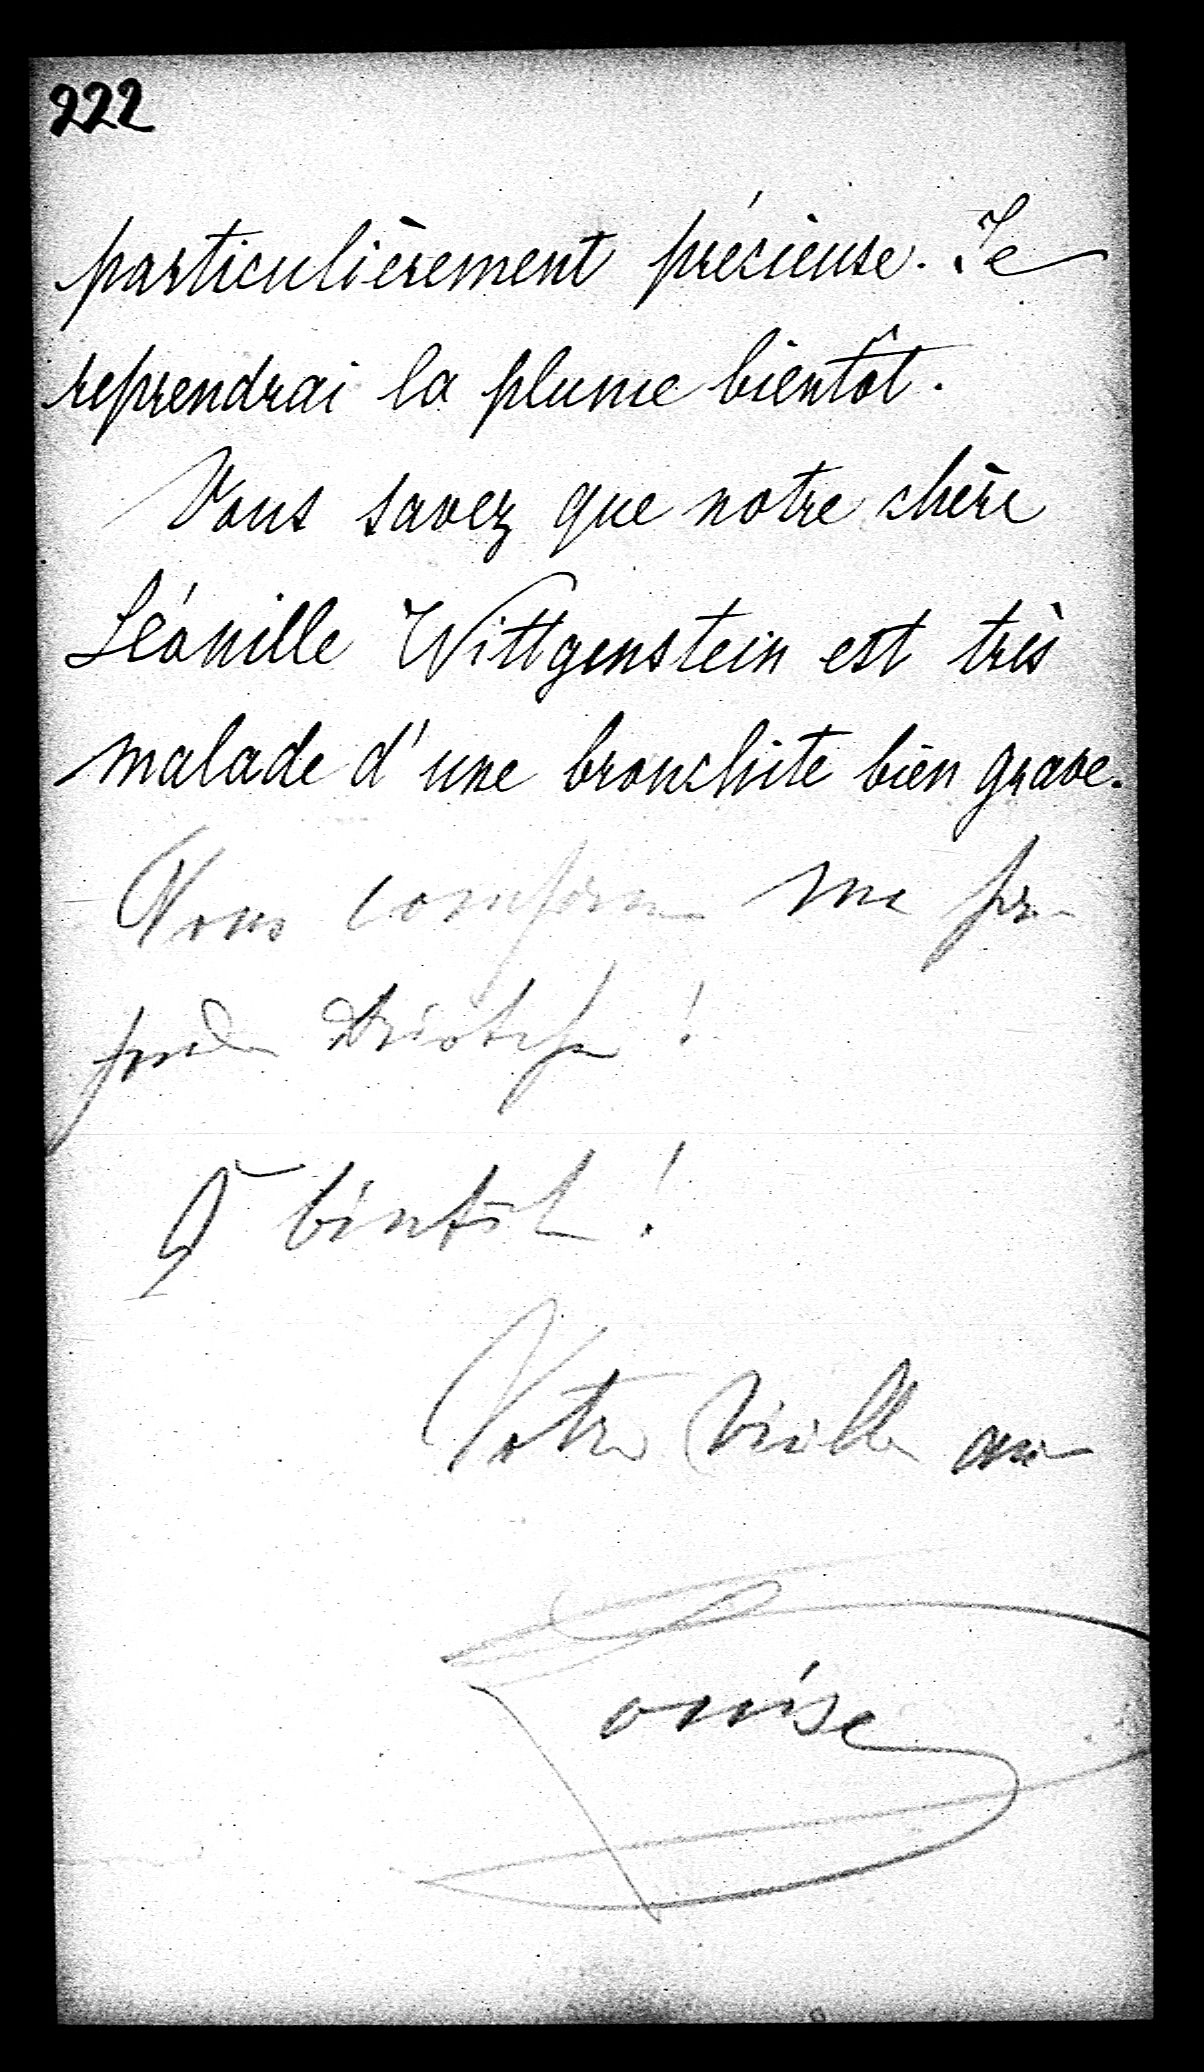 222
particulièrement précieuse. Je
reprendrai la plume bientôt.
Vous savez que notre chère
Léonille Wittgenstein est très
malade d'une bronchite bien grave.
Vous me pro-
fonde !
A bientôt !
Votre vieille amie
Louise